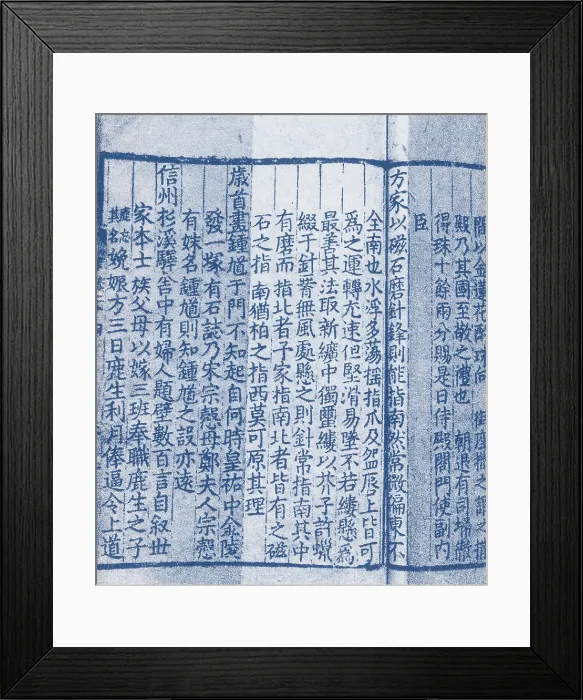 閣以金蓮花酌珠向 御座撒之謂之撒
殿乃其國至敬之禮也 朝退有司掃徹
得珠十餘兩分賜是日侍殿閤門使副內
臣
方家以磁石磨針鋒則能指南然常微偏東不
全南也水浮多蕩搖指爪及盌唇上皆可
爲之運轉尤速但堅滑易墜不若縷懸爲
最善其法取新纊中獨璽縷以芥子許蠟
綴于針腰無風處懸之則針常指南其中
有磨而指北者予家指南北者皆有之磁
石之指南猶柏之指西莫可原其理
歲首畫鍾馗于門不知起自何時皇祐中金陵
發一塚有石誌乃宋宗愨母鄭夫人宗愨
有妹名鍾馗則知鍾馗之設亦遠
信州杉溪驛舍中有婦人題壁數百言自叙世
家本士族父母以嫁三班奉職鹿生之子
鹿忘其名娩娠方三日鹿生利月俸逼令上道